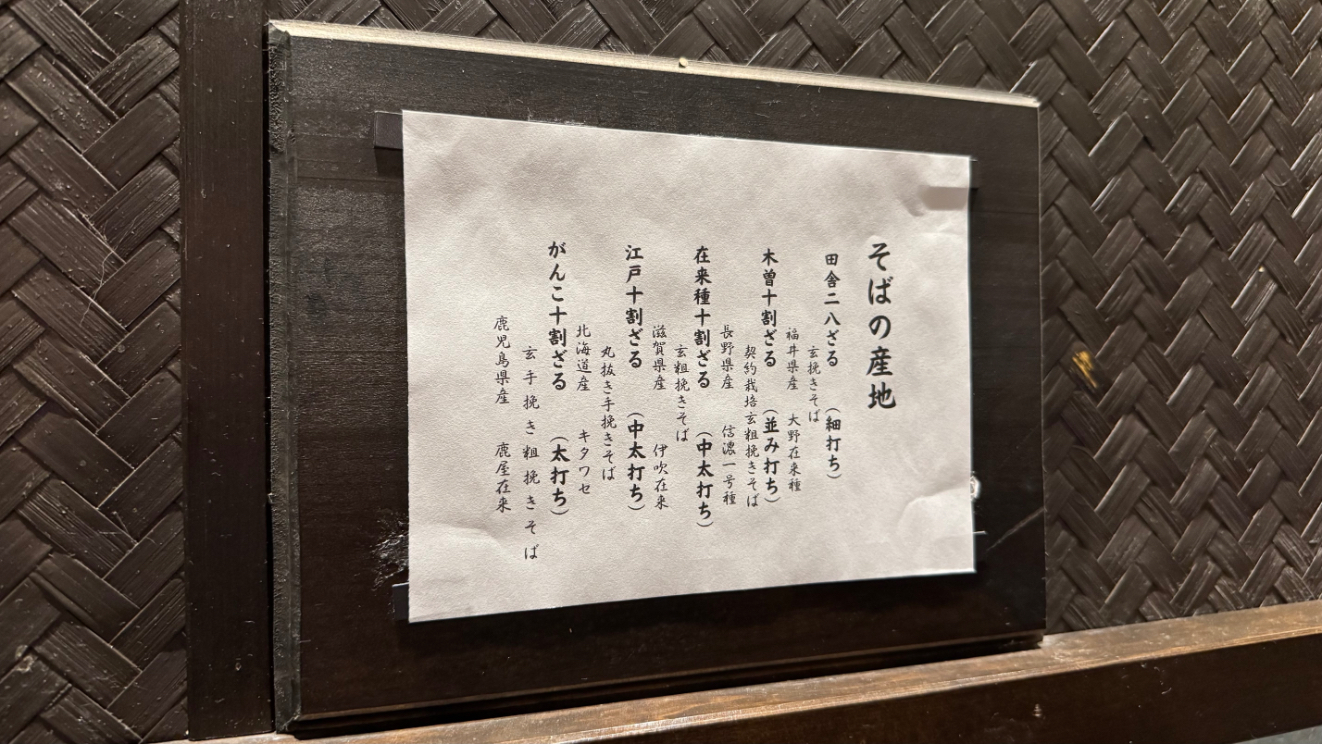 そばの産地
田舎二八ざる （細打ち）
玄挽きそば
福井県産 大野在来種
木曽十割ざる （並み打ち）
契約栽培玄粗挽きそば
長野県産 信濃一号種
在来種十割ざる （中太打ち）
玄粗挽きそば
滋賀県産 伊吹在来
江戸十割ざる （中太打ち）
丸抜き手挽きそば
北海道産 キタワセ
がんこ十割ざる （太打ち）
玄手挽き粗挽きそば
鹿児島県産 鹿屋在来